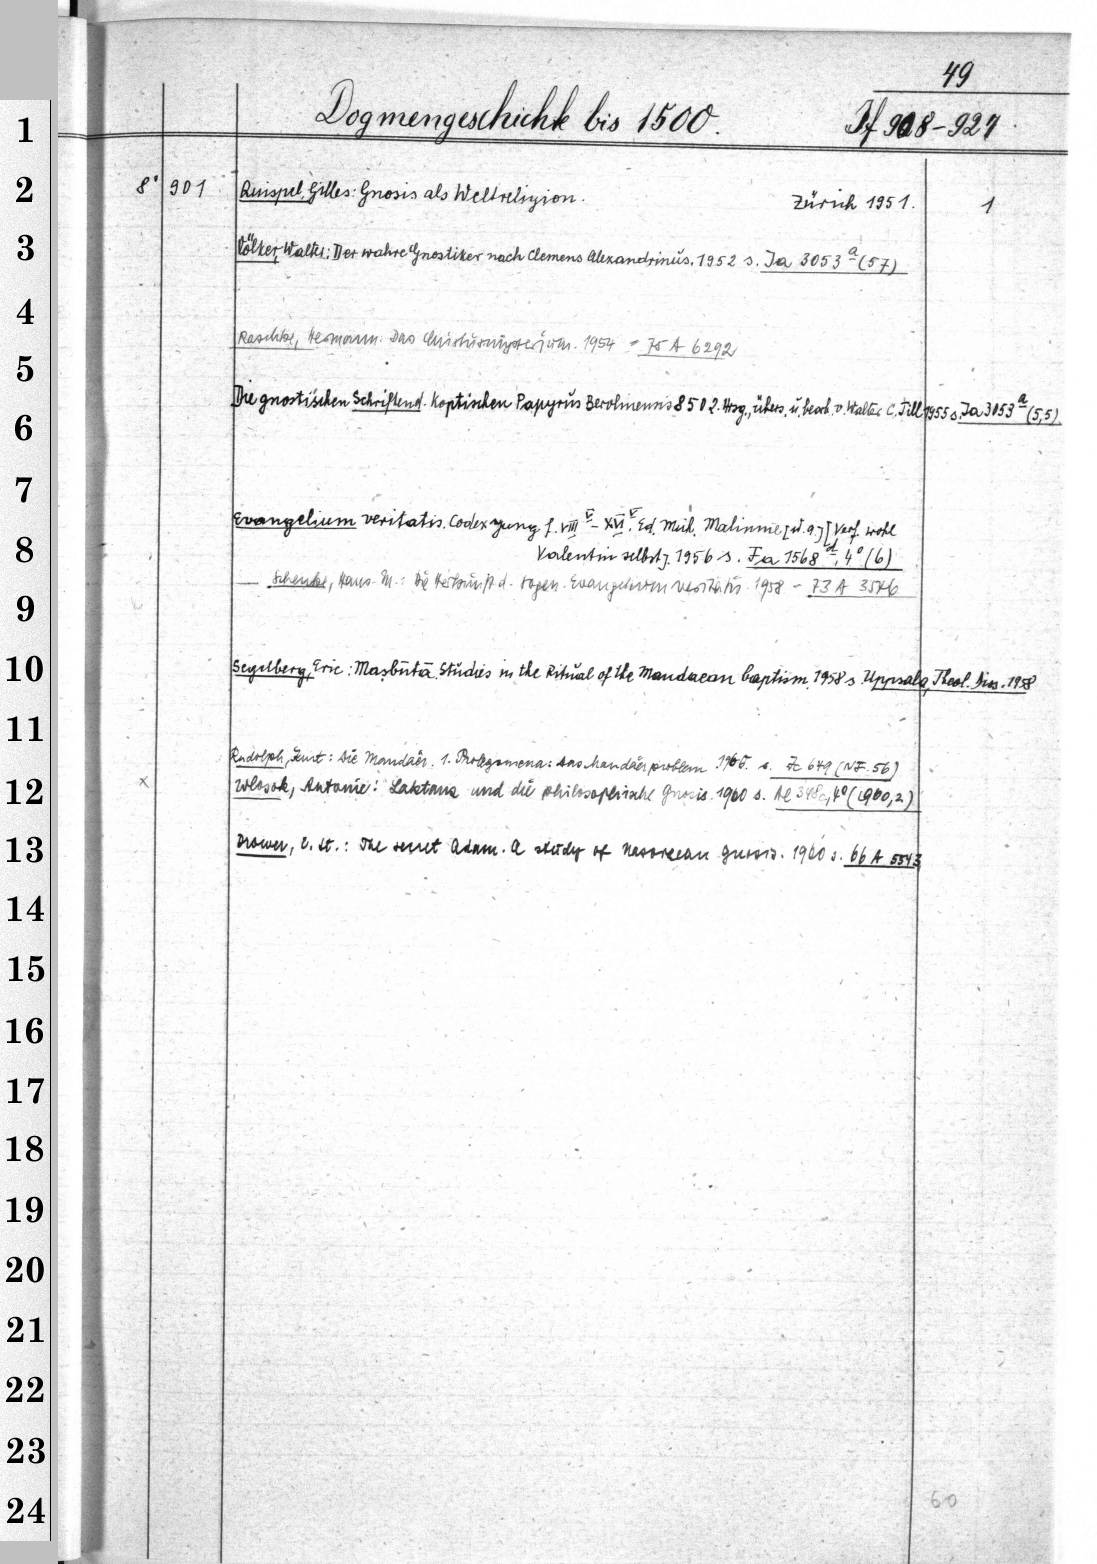 49
Dogmengeschichte bis 1500. If 908-927
8° 901 Quispel, Gilles: Gnosis als Weltreligion. Zürich 1951. 1
Völker, Walter: Der wahre Gnostiker nach Clemens Alexandrinus. 1952 s. Ja 3053 a (57)
Raschke, Hermann: Das Christusmysterium. 1954 = 75 A 6292
Die gnostischen Schriften d. koptischen Papyrus Berolinensis 8502. Hrsg., übers. u. bearb. v. Walter C. Till 1955 s. Ja 3053 a (5,5).
Evangelium veritatis. Codex Jung f. VIII v - XVI v. Ed. Mich. Malinine [u.a.] [Verf. wohl
Valentin selbst]. 1956 s. Fa 1568 d, 4° (6)
— Schenke, Hans-M.: Die Herkunft d. sogen. Evangelium veritatis. 1958 - 73 A 3576
Segelberg, Eric: Maṣbūtā. Studies in the Ritual of the Mandaean baptism. 1958 s. Uppsala, Theol. Diss. 1958
Rudolph, Kurt: Die Mandäer. 1. Prolegomena: Das Mandäerproblem 1960. s. Zc 649 (NF. 56)
x Wlosok, Antonie: Laktanz und die philosophische Gnosis. 1960 s. 4° (1960,2)
Drower, E. St.: The secret Adam. A study of Nasoraean gnosis. 1960 s. 66 A 5543
60
1
2
3
4
5
6
7
8
9
10
11
12
13
14
15
16
17
18
19
20
21
22
23
24